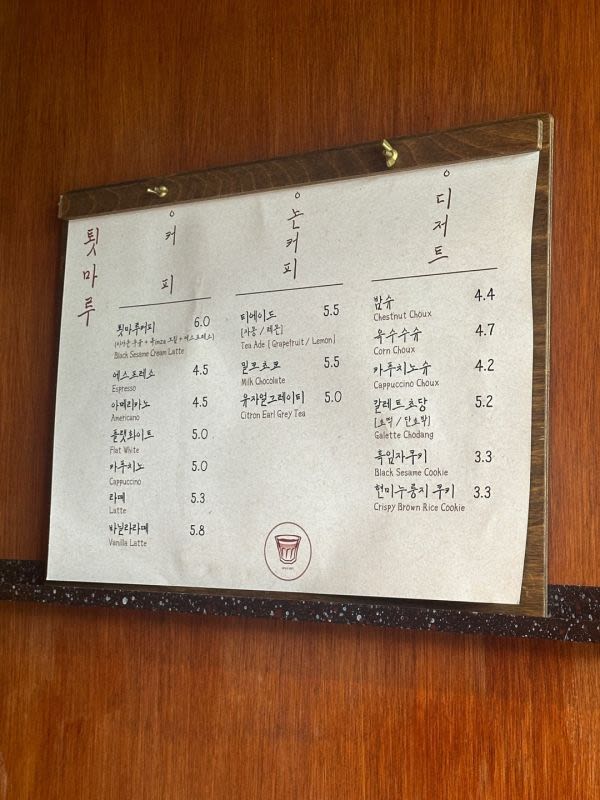 툇마루
커피
툇마루커피 6.0
Black Sesame Cream Latte
에스프레소 4.5
Espresso
아메리카노 4.5
Americano
플랫화이트 5.0
Flat White
카푸치노 5.0
Cappuccino
라떼 5.3
Latte
바닐라라떼 5.8
Vanilla Latte
논커피
티에이드 5.5
[자몽 / 레몬]
Tea Ade [ Grapefruit / Lemon]
밀크초코 5.5
Milk Chocolate
유자얼그레이티 5.0
Citron Earl Grey Tea
디저트
밤슈 4.4
Chestnut Choux
옥수수슈 4.7
Corn Choux
카푸치노슈 4.2
Cappuccino Choux
갈레트초당 5.2
Galette Chodang
흑임자쿠키 3.3
Black Sesame Cookie
현미누룽지 쿠키 3.3
Crispy Brown Rice Cookie